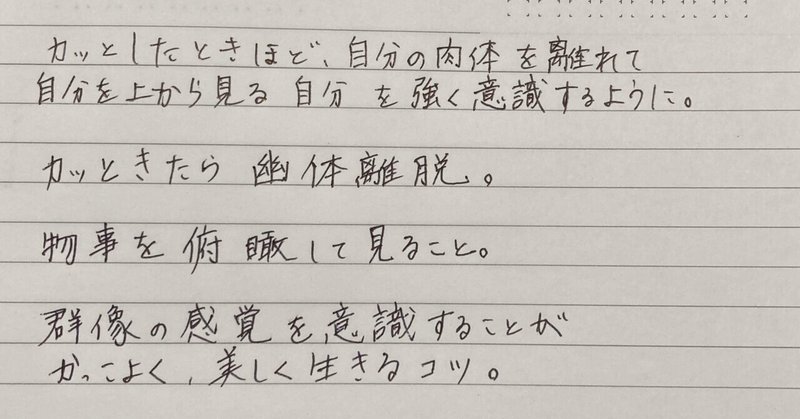 カッとしたときほど、自分の肉体を離れて
自分を上から見る自分を強く意識するように。
カッときたら幽体離脱。
物事を俯瞰して見ること。
群像の感覚を意識することが
かっこよく、美しく生きるコツ。